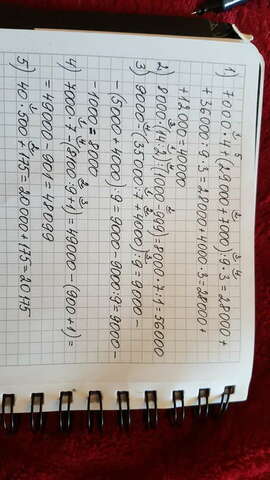 1) 7000·4+(28000+8000):9·3=28000+
+36000:9·3=28000+4000·3=28000+
+12000=40000
2) 8000·(14:2):(1000-999)=8000·7·1=56000
3) 9000-(35000:7+4000):9=9000-
-(5000+4000):9=9000-9000:9=9000-
-1000=8000
4) 7000·7-(8100:9+1)=49000-(900+1)=
=49000-901=48099
5) 40·500+175=20000+175=20175